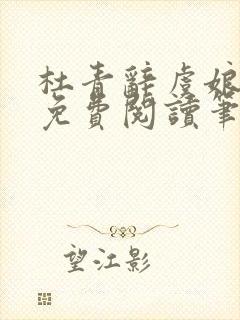 杜青辭虞娘
免費閱讀筆
望江影